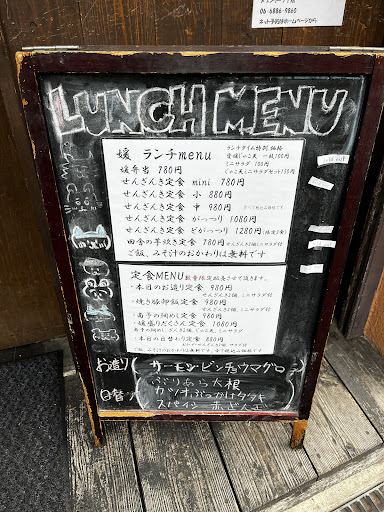 06-6886-9860
ネット予約はホームページから
LUNCH MENU
媛 ランチmenu
ランチタイム特別価格
媛弁当 780円
せんざんき定食 mini 780円
せんざんき定食 小 880円
せんざんき定食 中 980円
せんざんき定食 がっつり 1080円
せんざんき定食 どがっつり 1280円
田舎の芋炊き定食 780円
ご飯、みそ汁のおかわりは無料です
定食MENU 数量限定販売させて頂きます。
・本日のお造り定食 980円
・焼き豚卵飯定食 980円
・南予の鯛めし定食 980円
・媛盛りだくさん定食 1080円
・本日の日替わり定食 880円
お造り(サーモン・ビンチョウマグロ)
日替り
ぶりあら大根
カツオぶっかけタタキ